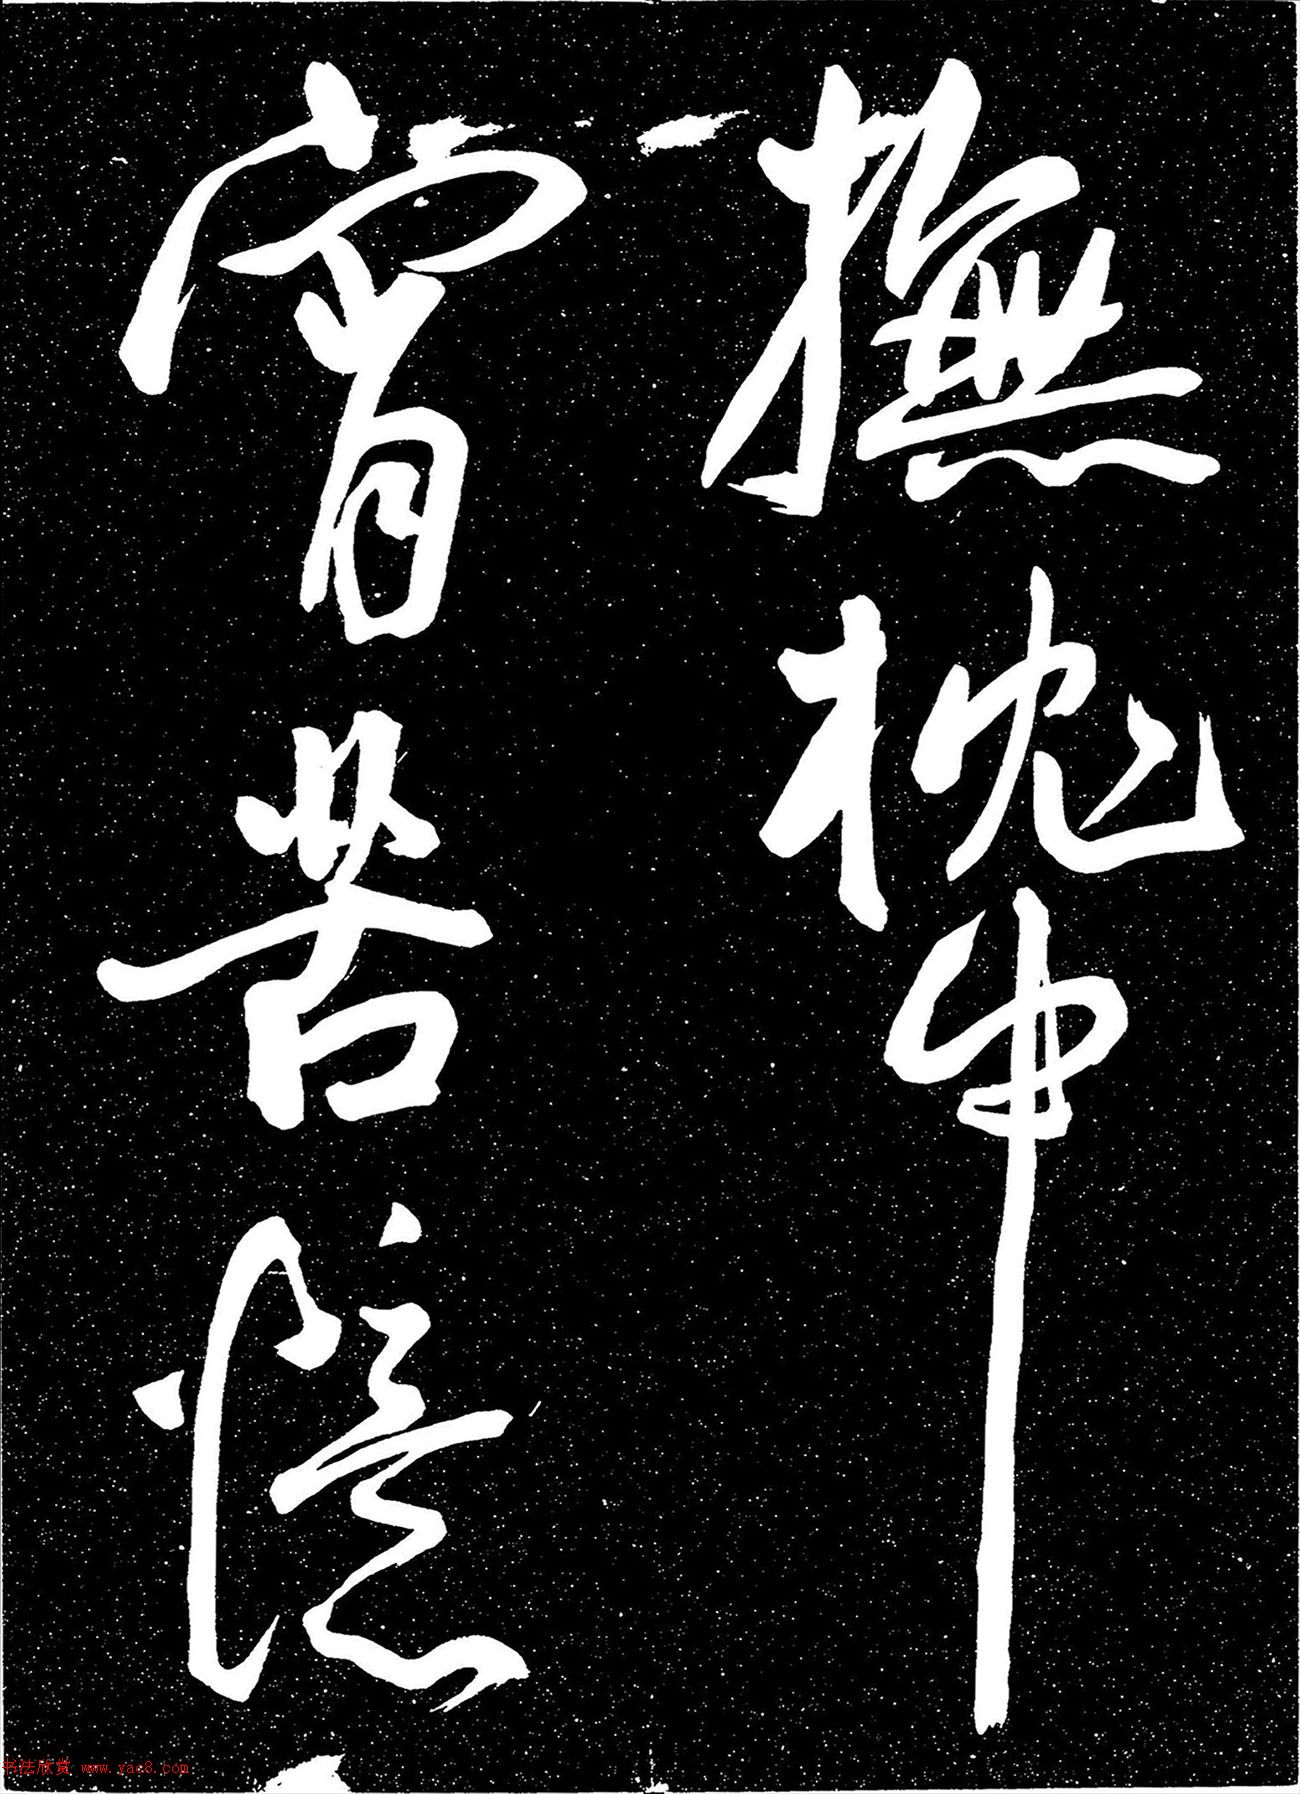 撫枕中
宵苦憶
书法欣赏 www.yac8.com